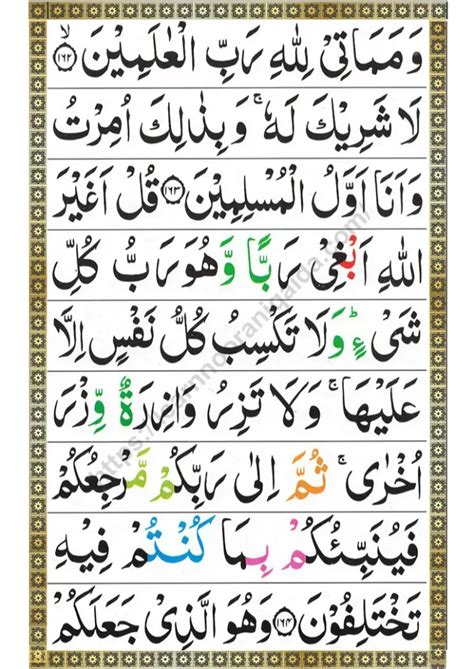 وَمَمَاتِیْ لِلّٰهِ رَبِّ الْعٰلَمِیْنَ ۙ﴿۱۶۲﴾
لَا شَرِیْكَ لَهٗ ۚ وَبِذٰلِكَ اُمِرْتُ
وَاَنَا اَوَّلُ الْمُسْلِمِیْنَ ﴿۱۶۳﴾ قُلْ اَغَیْرَ
اللّٰهِ اَبْغِیْ رَبًّا وَّهُوَ رَبُّ كُلِّ
شَیْءٍ ؕ وَلَا تَكْسِبُ كُلُّ نَفْسٍ اِلَّا
عَلَیْهَا ۚ وَلَا تَزِرُ وَازِرَةٌ وِّزْرَ
اُخْرٰی ۚ ثُمَّ اِلٰی رَبِّكُمْ مَّرْجِعُكُمْ
فَیُنَبِّئُكُمْ بِمَا كُنْتُمْ فِیْهِ
تَخْتَلِفُوْنَ ﴿۱۶۴﴾ وَهُوَ الَّذِیْ جَعَلَكُمْ
8